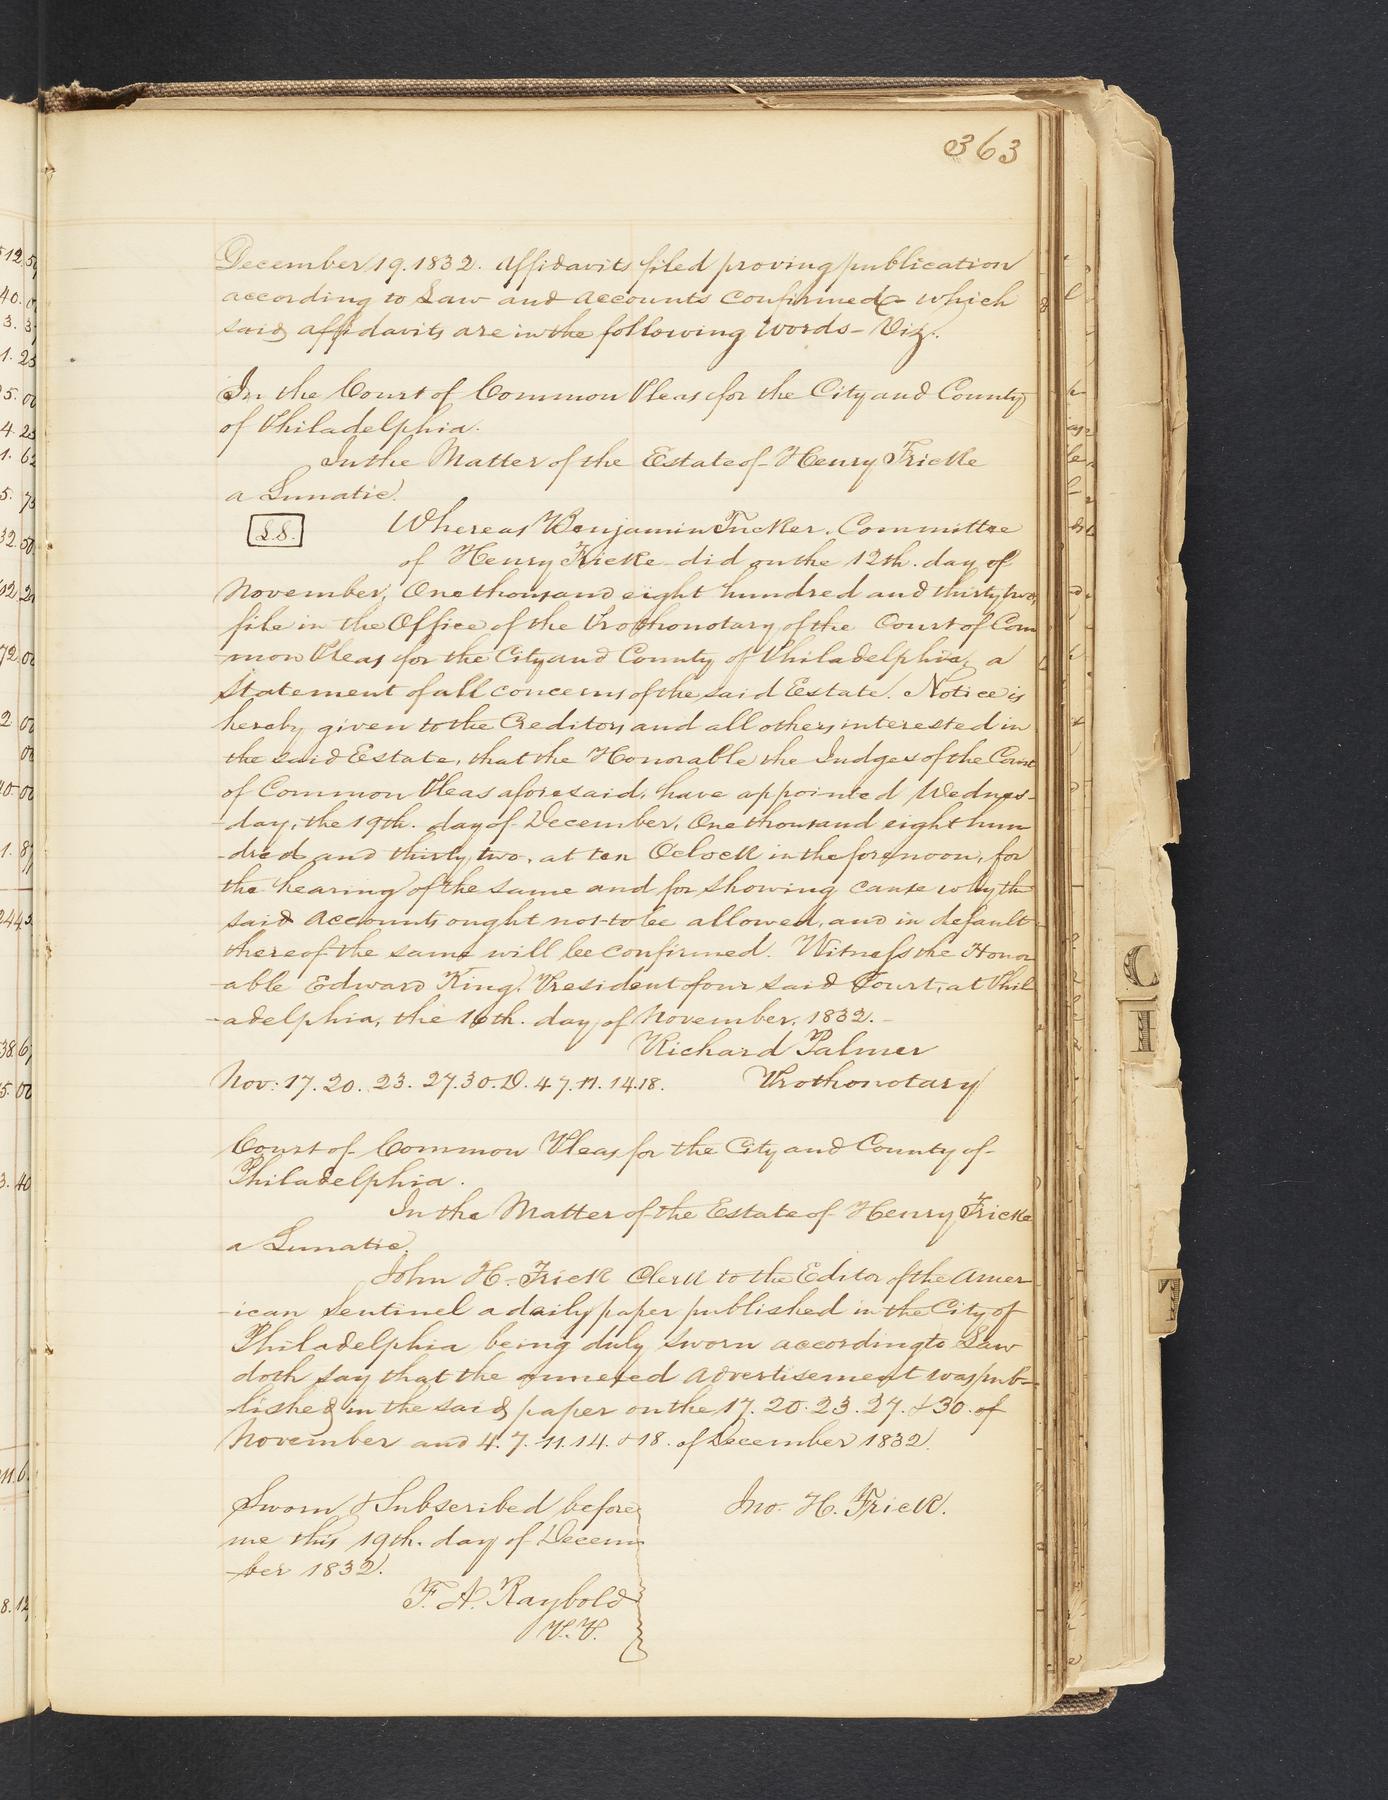 363
December 19. 1832. Affidavits filed proving publication
according to Law and accounts confirmed - which
said affidavits are in the following words - Viz.
In the Court of Common Pleas for the City and County
of Philadelphia.
In the Matter of the Estate of Henry Fricke
a Lunatic.
L.S.
Whereas Benjamin Tucker. Committee
of Henry Fricke did on the 12th. day of
November, One thousand eight hundred and thirty two,
file in the Office of the Prothonotary of the Court of Com
-mon Pleas for the City and County of Philadelphia, a
Statement of all concerns of the said Estate. Notice is
hereby given to the Creditors and all others interested in
the said Estate, that the Honorable the Judges of the Court
of Common Pleas aforesaid, have appointed Wednes-
-day, the 19th. day of December, One thousand eight hun
-dred and thirty two, at ten Oclock in the forenoon, for
the hearing of the same and for showing cause why the
said accounts ought not to be allowed, and in default
thereof the same will be confirmed. Witness the Honor
-able Edward King. President of our said Court, at Phil
-adelphia, the 16th. day of November, 1832. -
Richard Palmer
Nov: 17. 20. 23. 27. 30. D. 4 7. 11. 14 18. Prothonotary
Court of Common Pleas for the City and County of
Philadelphia.
In the Matter of the Estate of Henry Fricke
a Lunatic.
John H. Frick Clerk to the Editor of the Amer
-ican Sentinel a daily paper published in the City of
Philadelphia being duly sworn according to Law
doth say that the annexed advertisement was pub-
-lished in the said paper on the 17. 20. 23. 27. & 30. of
November and 4. 7. 11. 14. & 18. of December 1832.
Sworn & Subscribed before Jno. H. Frick.
me this 19th. day of Decem
-ber 1832.
F. A. Raybold
P. P.